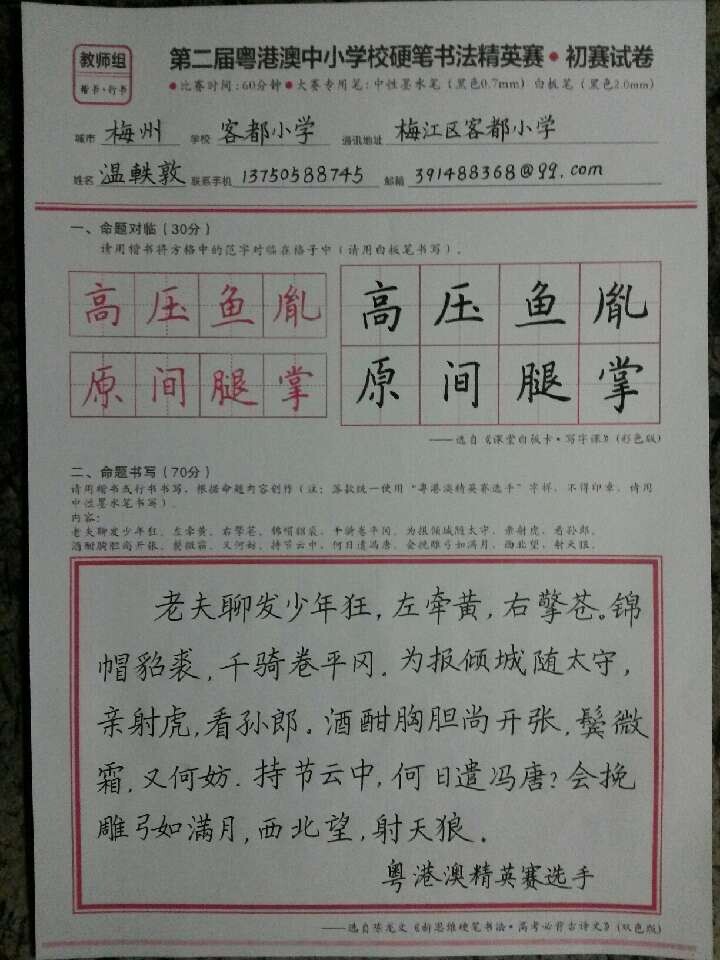 教师组
楷书·行书
第二届粤港澳中小学校硬笔书法精英赛·初赛试卷
●比赛时间:60分钟●大赛专用笔:中性墨水笔(黑色0.7mm) 白板笔(黑色2.0mm)
城市 梅州 学校 客都小学 通讯地址 梅江区客都小学
姓名 温轶敦 联系手机 13750588745 邮箱 391488368@qq.com
一、命题对临(30分)
请用楷书将方格中的范字对临在格子中(请用白板笔书写)。
高压鱼胤
原间腿掌
高压鱼胤
原间腿掌
——选自《课堂白板卡·写字课》(彩色版)
二、命题书写(70分)
请用楷书或行书书写,根据命题内容创作(注:落款统一使用“粤港澳精英赛选手”字样,不得印章,请用
中性墨水笔书写)。
内容:
老夫聊发少年狂,左牵黄,右擎苍,锦帽貂裘,千骑卷平冈。为报倾城随太守,亲射虎,看孙郎。
酒酣胸胆尚开张,鬓微霜,又何妨。持节云中,何日遣冯唐。会挽雕弓如满月,西北望,射天狼。
老夫聊发少年狂,左牵黄,右擎苍。锦
帽貂裘,千骑卷平冈。为报倾城随太守,
亲射虎,看孙郎。酒酣胸胆尚开张,鬓微
霜,又何妨.持节云中,何日遣冯唐?会挽
雕弓如满月,西北望,射天狼.
粤港澳精英赛选手
——选自陈龙文《新思维硬笔书法·高考必背古诗文》(双色版)